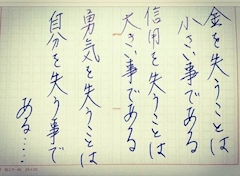 金を失うことは
小さい事である
信用を失うことは
大きい事である
勇気を失うことは
自分を失う事で
ある‥‥